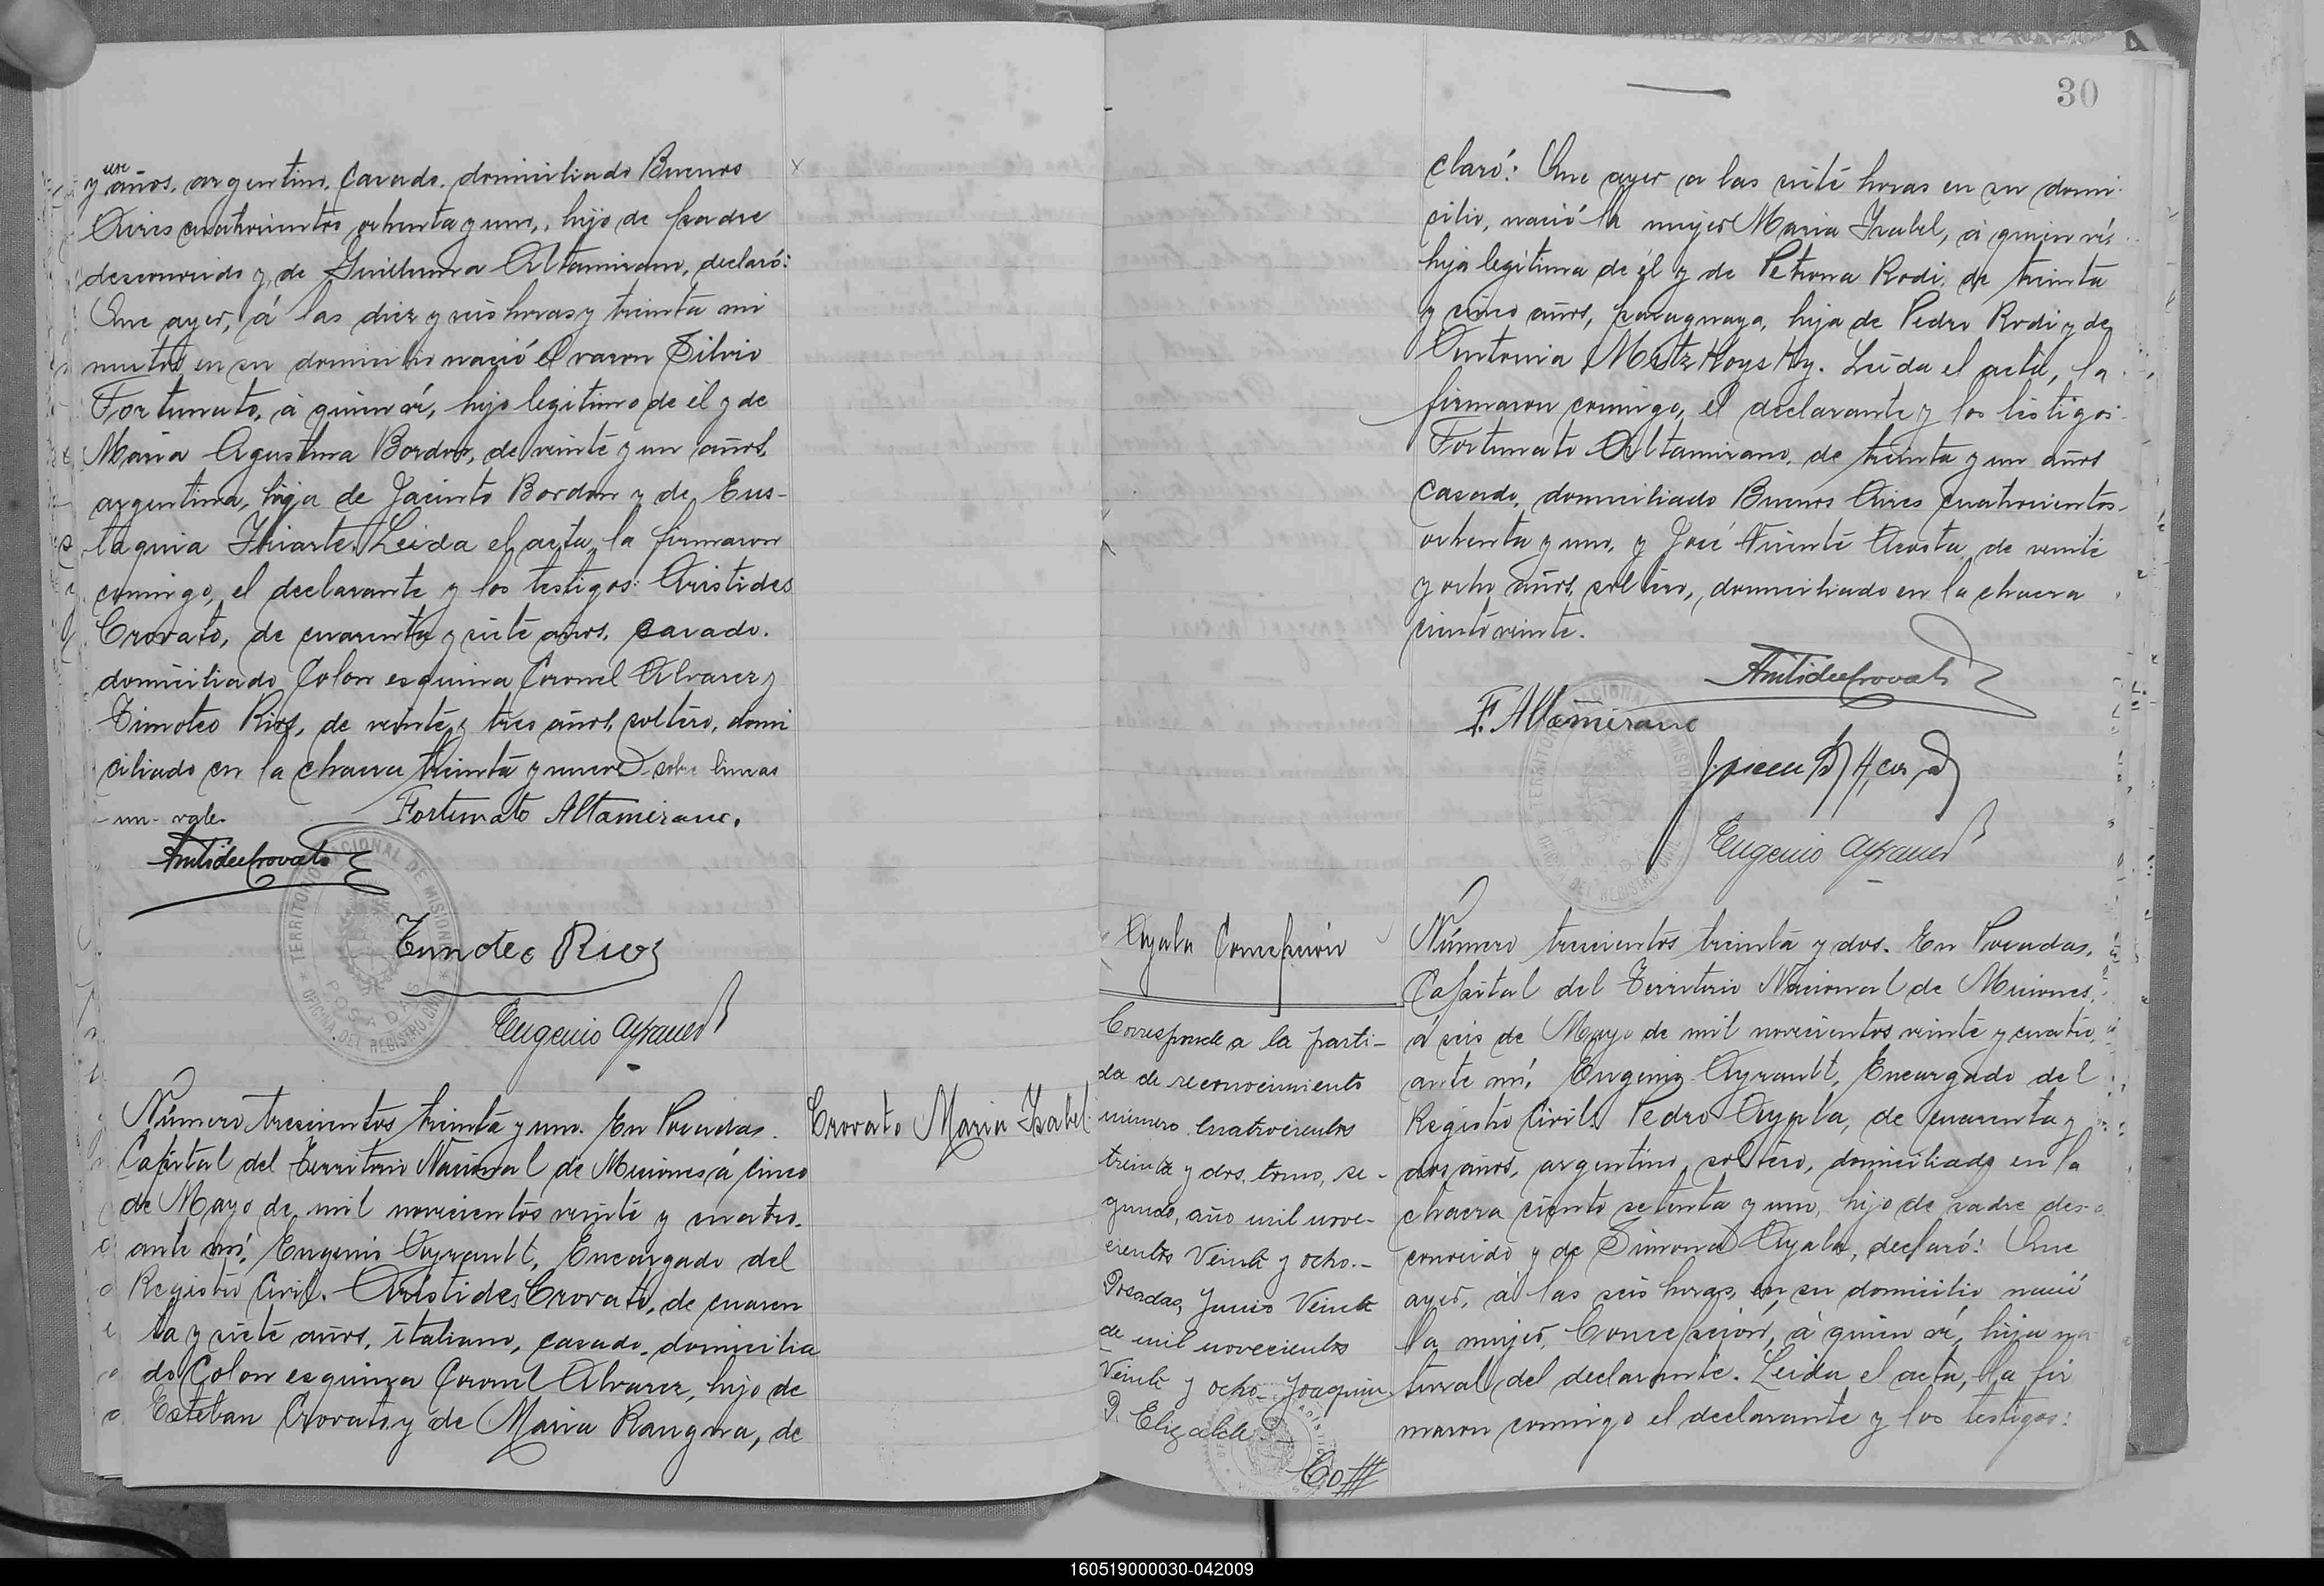 un
y años, argentino, casado, domiciliado Buenos
Aires cuatrocientos ochenta y uno, hijo de padre
desconocido y de Guillerma Altamirano, declaró:
Que ayer, á las diez y seis horas y treinta mi
nutos en su domicilio nació el varon Silvio
Fortunato, á quien ví, hijo legitimo de él y de
Maria Agustina Bordon, de veinte y un años,
argentina, hija de Jacinto Bordon y de Eus-
taquia Iriarte. Leida el acta, la firmaron
conmigo, el declarante y los testigos: Aristides
Crovato, de cuarenta y siete años, casado,
domiciliado Colon esquina Coronel Alvarez y
Timoteo Rios, de veinte y tres años, soltero, domi
ciliado en la chacra treinta y nueve - sobre lineas
- un - vale.
Fortunato Altamirano.
Aristides Crovato
TERRITORIO NACIONAL DE MISIONES
POSADAS
OFICINA DEL REGISTRO CIVIL
Timoteo Rios
Eugenio Ayrault
Número trescientos treinta y uno. En Posadas.
Crovato Maria Isabel
Capital del Territorio Nacional de Misiones á cinco
de Mayo de mil novecientos veinte y cuatro.
ante mí, Eugenio Ayrault, Encargado del
Registro Civil. Aristides Crovato, de cuaren
ta y siete años, italiano, casado, domicilia
do Colon esquina Coronel Alvarez, hijo de
Esteban Crovato y de Maria Rangna, de
30
claró: Que ayer a las siete horas en su domi-
cilio, nació la mujer Maria Isabel, á quien ví,
hija legitima de él y de Petrona Rodi, de treinta
y cinco años, paraguaya, hija de Pedro Rodi y de
Antonia. Leida el acta, la
firmaron conmigo, el declarante y los testigos:
Fortunato Altamirano, de treinta y un años
casado, domiciliado Buenos Aires cuatrocientos
ochenta y uno, y José Vicente Acosta, de veinte
y ocho años, soltero, domiciliado en la chacra
ciento veinte.
Aristides Crovato
F. Altamirano
TERRITORIO NACIONAL DE MISIONES
OFICINA DEL REGISTRO CIVIL
Eugenio Ayrault
Ayala Concepción
Corresponde a la parti-
da de reconocimiento
número cuatrocientos
treinta y dos, tomo, se-
gundo, año mil nove-
cientos veinte y ocho.-
Posadas, Junio Veinte
de mil novecientos
Veinte y ocho - Joaquin
P. Elizalde
Número trescientos treinta y dos. En Posadas,
Capital del Territorio Nacional de Misiones,
á seis de Mayo de mil novecientos veinte y cuatro,
ante mí, Eugenio Ayrault, Encargado del
Registro Civil. Pedro Ayala, de cuarenta y
dos años, argentino, soltero, domiciliado en la
chacra ciento setenta y uno, hijo de padre des-
conocido y de Simona Ayala, declaró: Que
ayer, á las seis horas, en su domicilio nació
la mujer, Concepción, á quien ví, hija na
tural del declarante. Leida el acta, la fir
maron conmigo el declarante y los testigos:
160519000030-042009